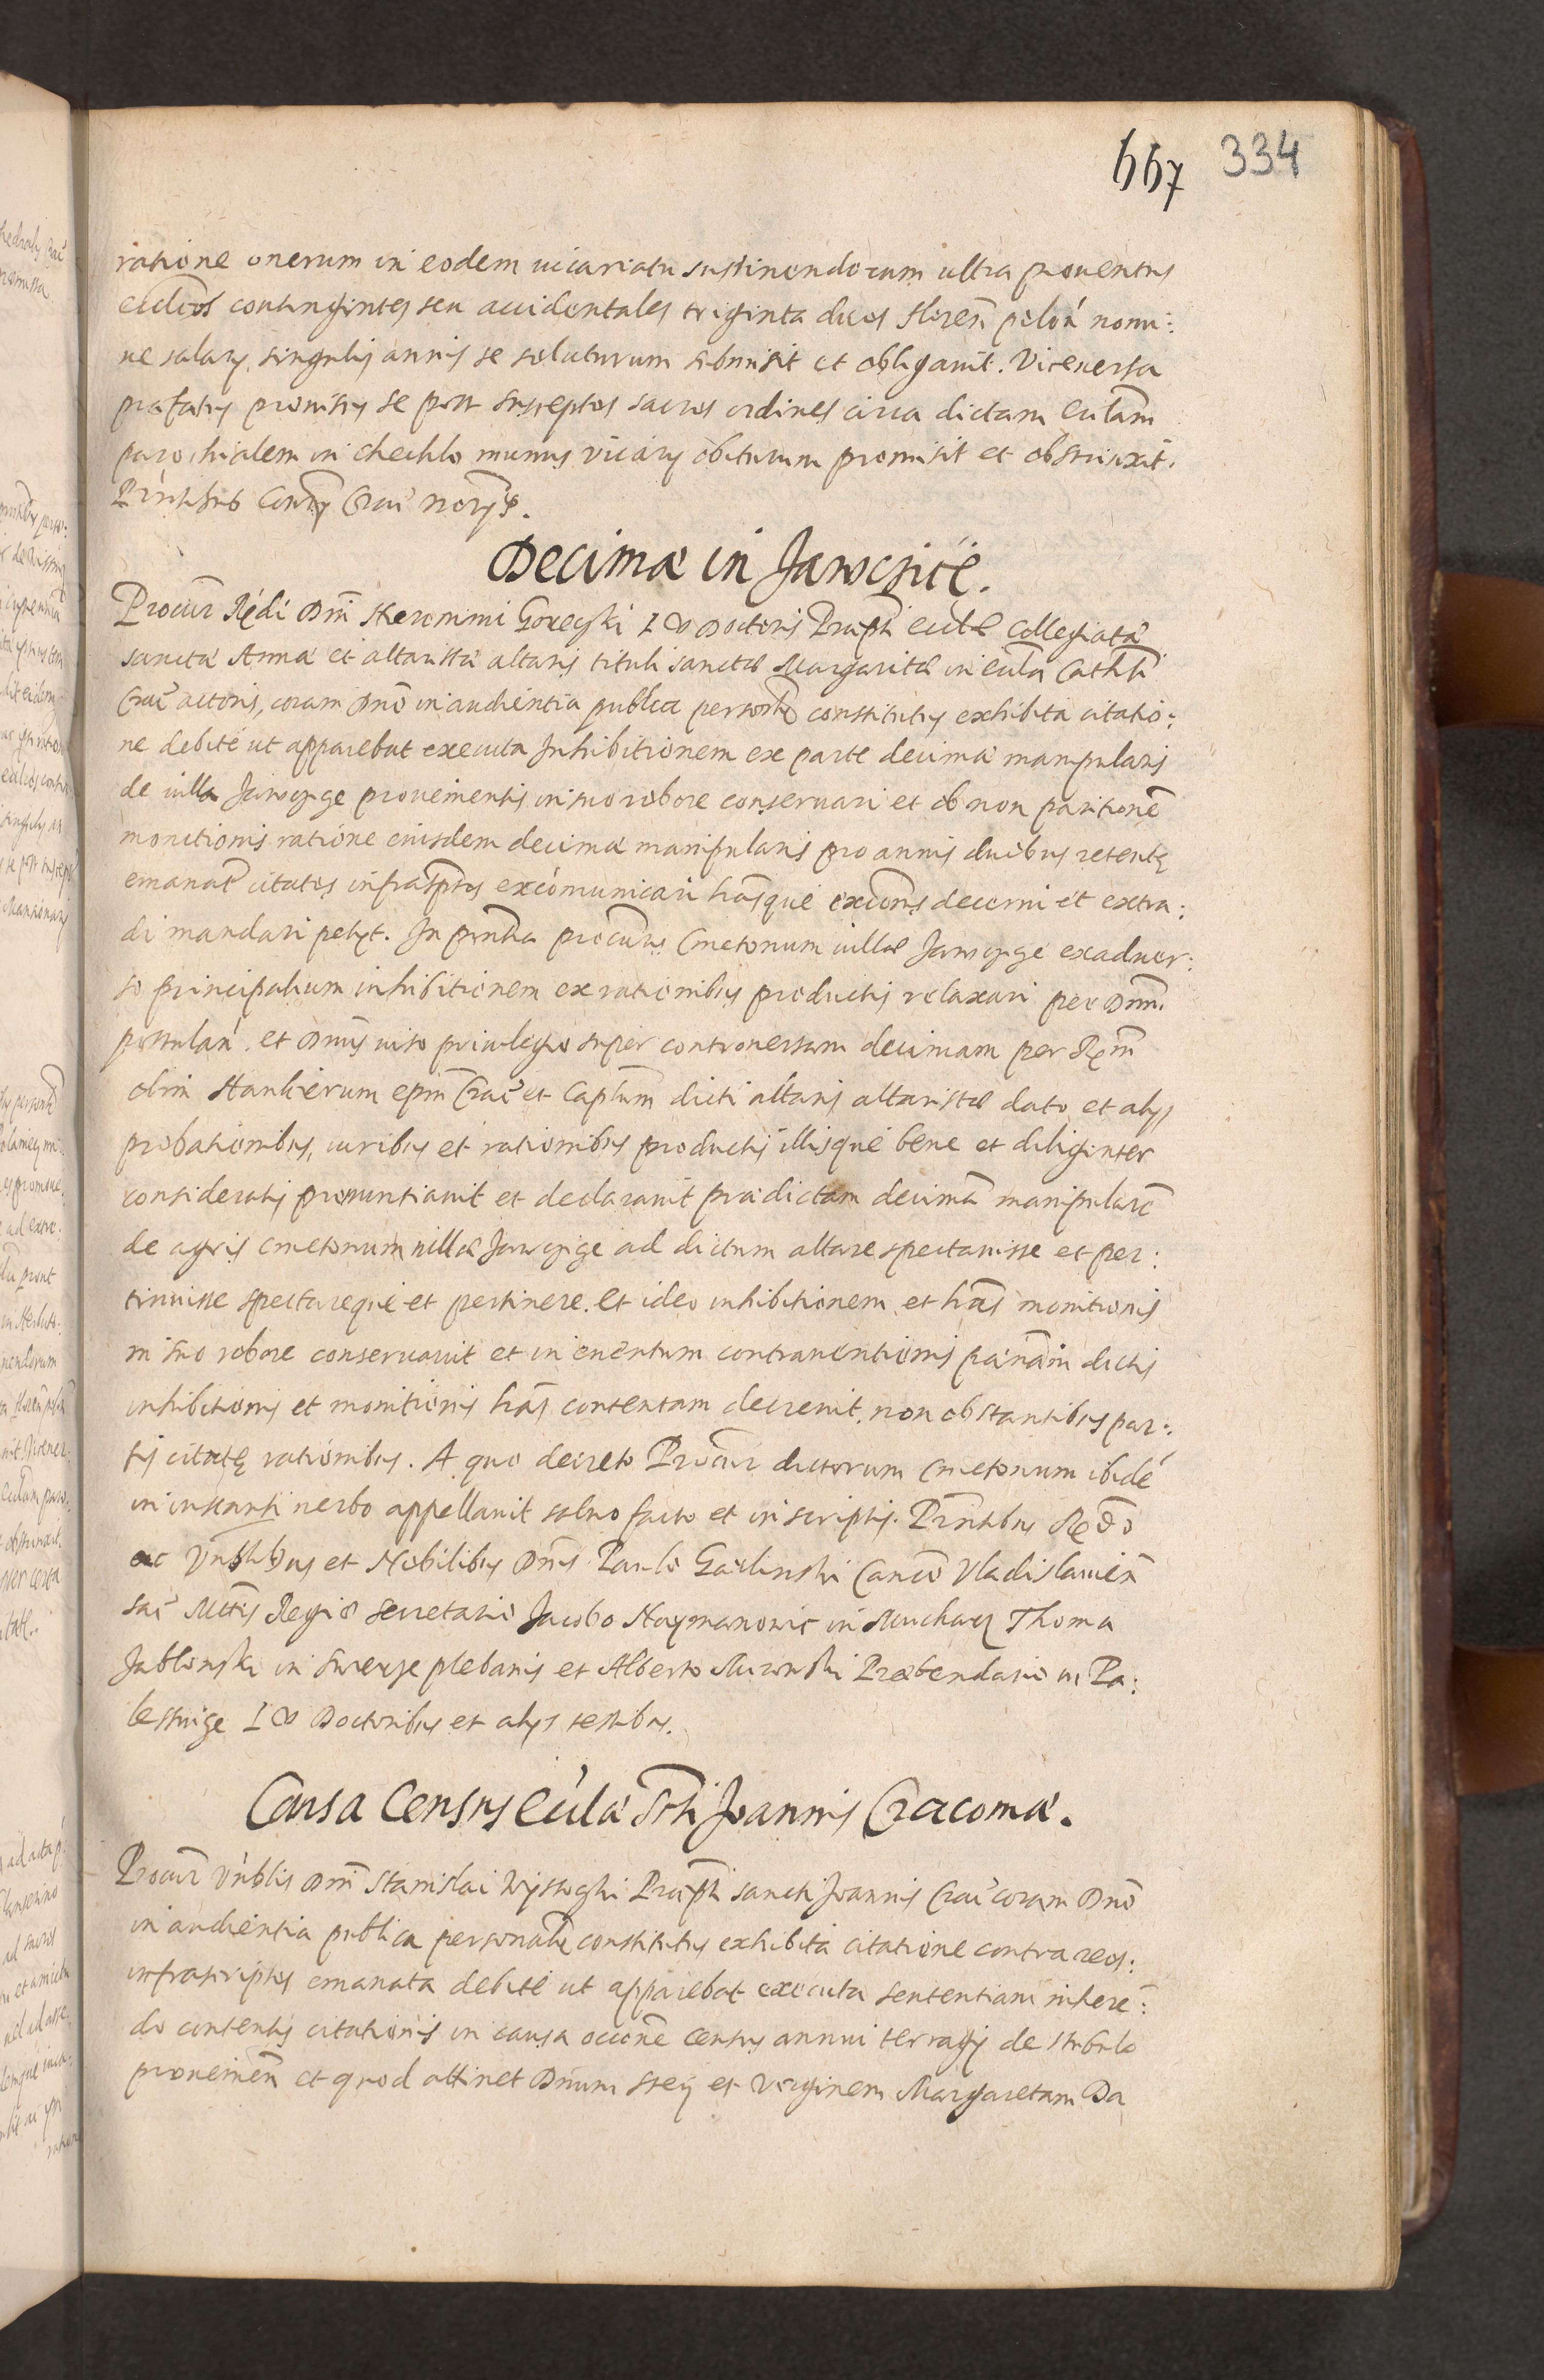 667 334
ratione onerum in eodem vicariatu sustinendorum ultra proventus
contingentes seu accidentales triginta duos floren̄ polon̄ nomi:
ne salarij singulis annis se soluturum submisit et obligavit. Viceversa
præfatus promisit se post susceptos sacros ordines circa dictam ecclām
parochialem in Chechlo munus vicarij obiturum promisit et obstrinxit.
Decimæ in Jawczice.
Procur̄ Rẹdi Dnī Hieronimi Doctoris Præpti ecclæ Collegiatæ
sanctæ Annæ et altaristæ altaris tituli sanctæ Margaritæ in eccla Cathli
Crac̄ actoris, coram Dnō in audientia publica constitutus exhibita citatio:
ne debite ut apparebat executa Inhibitionem ex parte decimæ manipularis
de villa Jawczyce provenientis in suo robore conservari et ob non paritionē
monitionis ratione eiusdem decimæ manipularis pro annis duobus retentę
emanat̄ citatos infrascptos excomunicari excōnis decerni et extra:
di mandari petijt. In pn̄tia procur̄ Cmetonum villæ Jawczyce exadver:
so principalium inhibitionem ex rationibus productis relaxari per Dnm̄
postulan̄. et Dnūs viso privilegio super controversam decimam per Rẹm̄
olim epm̄ Crac̄ et Caplum̄ dicti altaris altaristæ dato et alys
probationibus, iuribus et rationibus productis illisque bene et diligenter
consideratis pronuntiavit et declaravit prædictam decimā manipularē
de agris cmetonum villæ Jawczyce ad dictum altare spectavisse et per:
tinuisse spectareque et pertinere. et ideo inhibitionem et lrās monitionis
in suo robore conservavit et in eventum contraventionis pænam dictis
inhibitionis et monitionis lrās contentam decrevit, non obstantibus par:
tis citatę rationibus. A quo decreto Procur̄ dictorum Cmetonum ibidē
in instanti verbo appellavit salvo facto et in scriptis. Pn̄tibus Rẹdō
ac Vnblibus et Nobilibus Dnis Paulo Canco Vladislavien̄
sac̄ Mttis Regiæ secretario Jacobo Naymanowic in Thoma
Jablonski in plebanis et Alberto Præbendario in Pa:
lestnige Doctoribus et alys testibus.
Causa Census Eclæ Scti Joannis Cracoviæ.
Procur̄ Vnblis Dnī Stanislai Præpti sancti Joannis Crac̄ coram Dnō
in audientia publica personaliter constitutus exhibita citatione contra reos:
infrascriptos emanata debite ut apparebat executa sententiam inhere:
do contentis citationis in causa occone census annui terragij de
provenien̄ et quod attinet Dnum et Virginem Margaretam Da